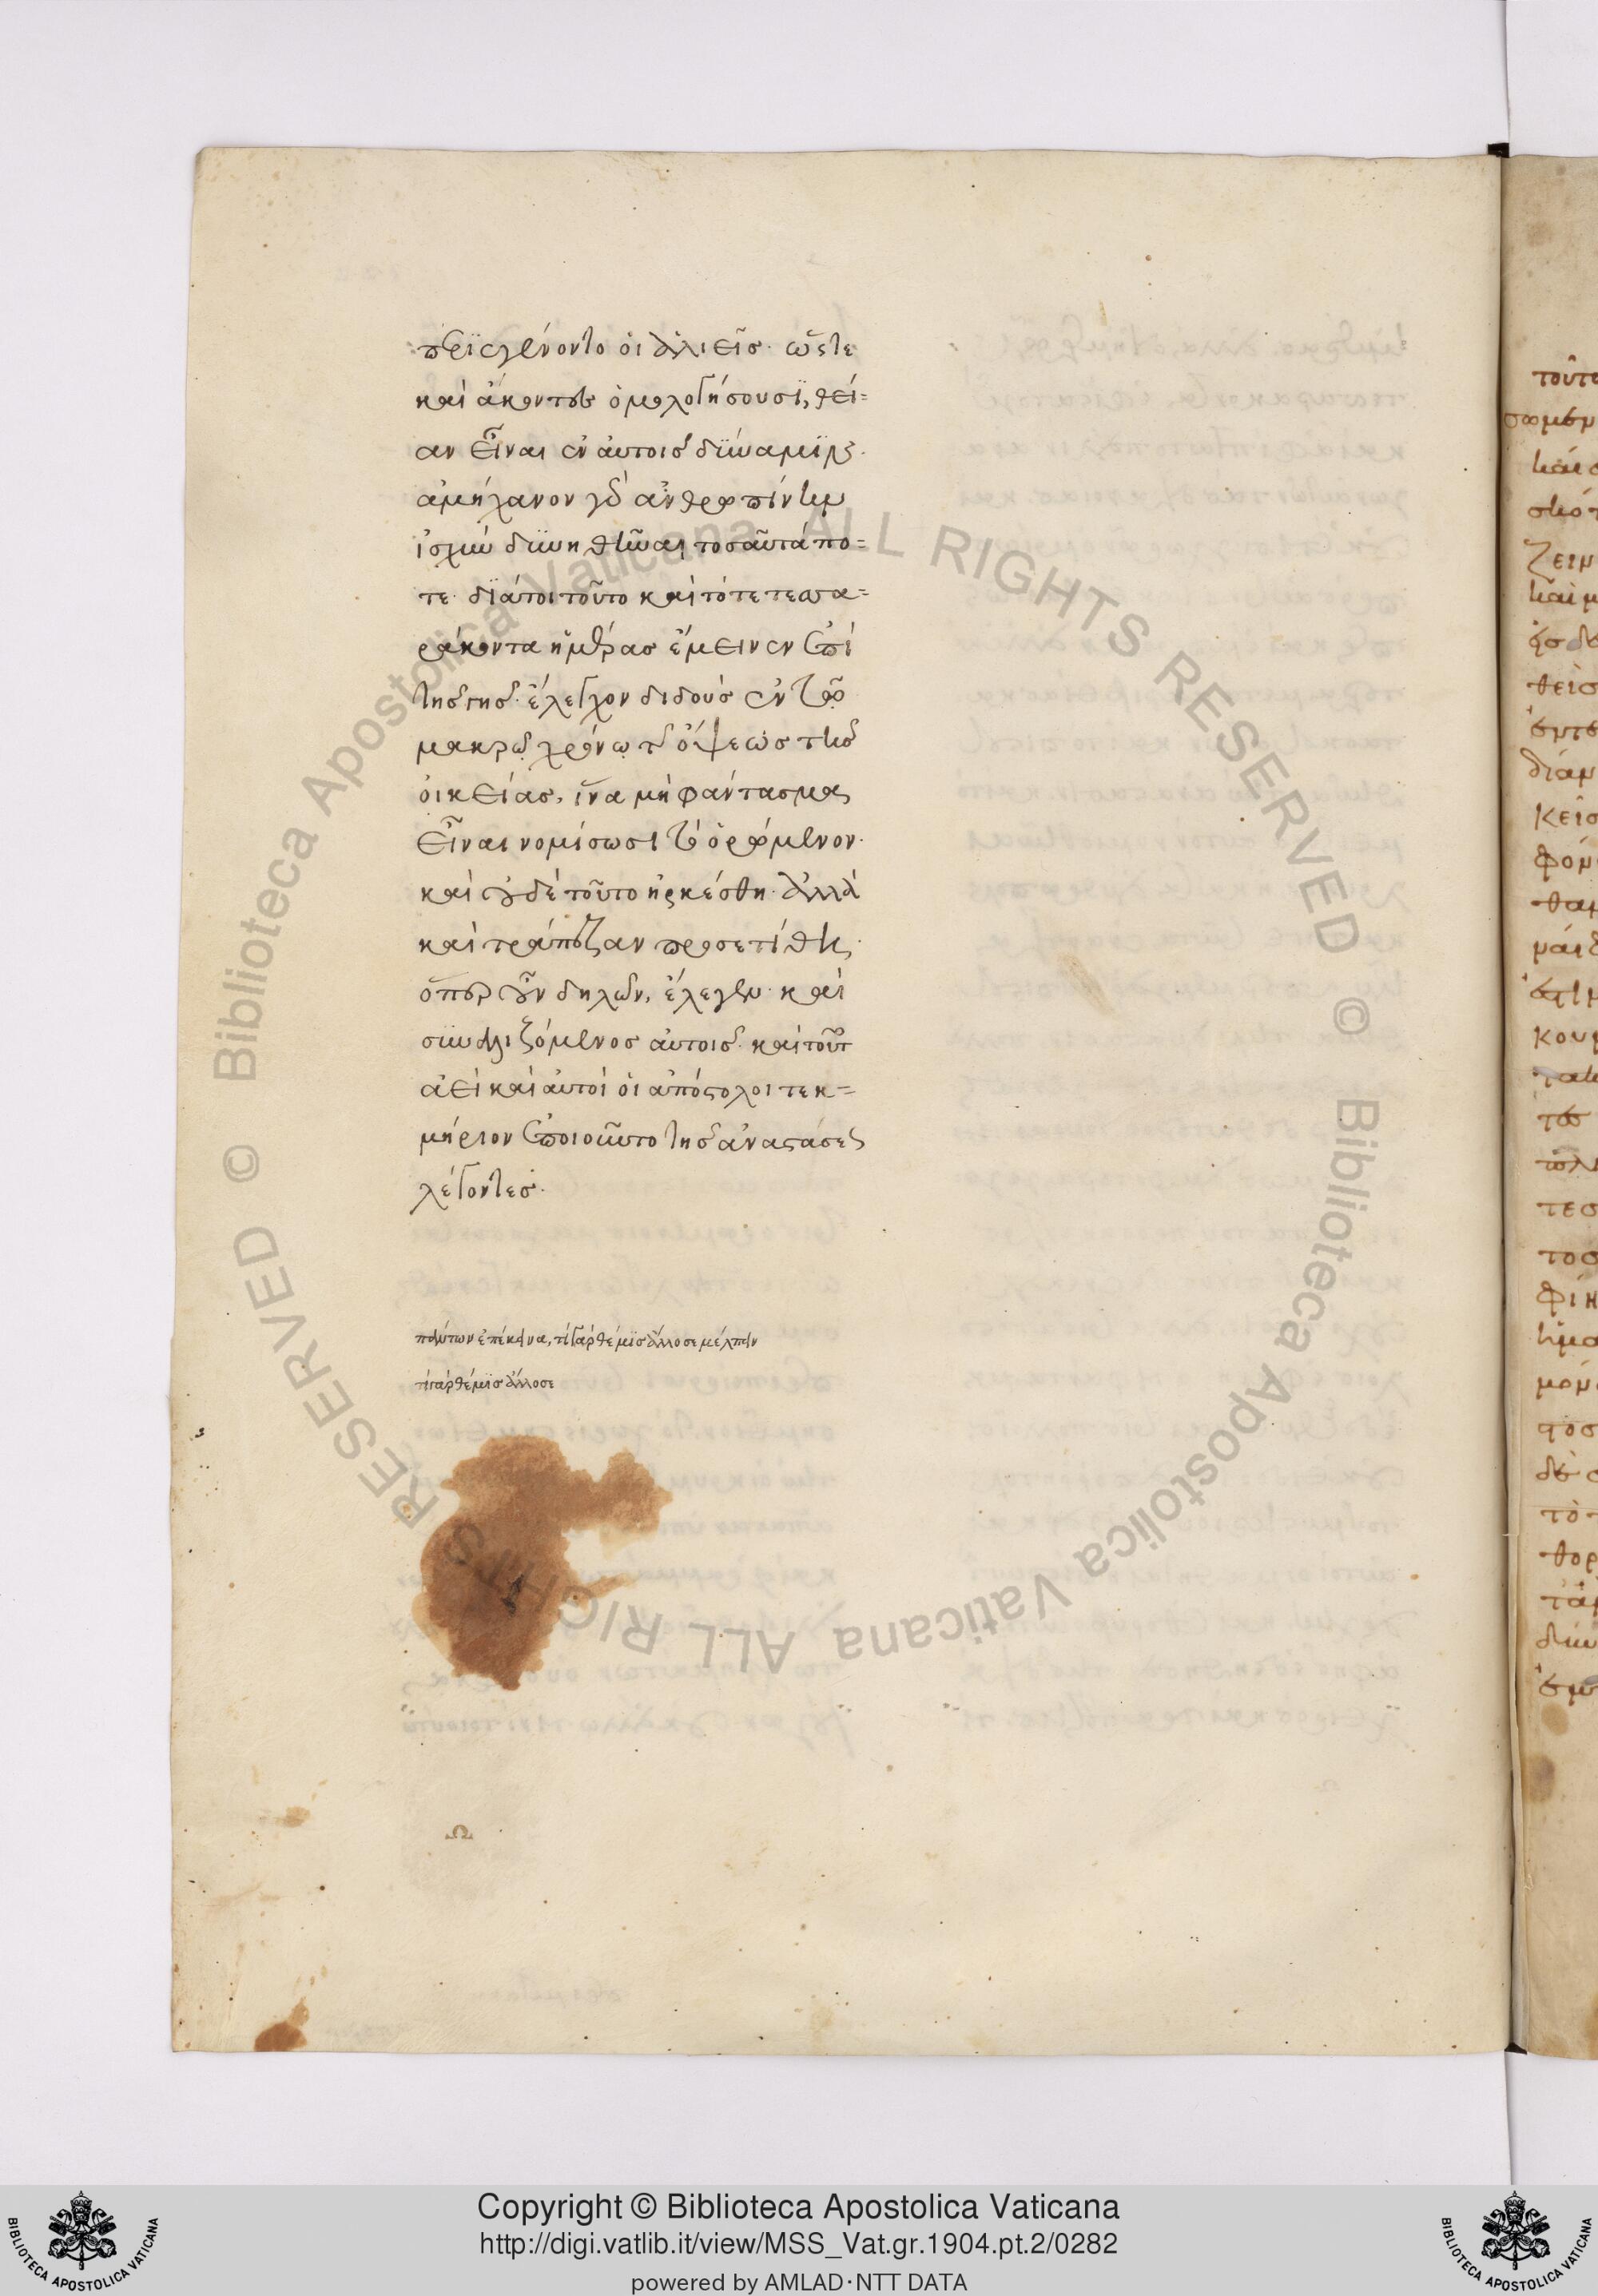 περιεγένοντο οἱ ἁλιεῖς· ὥστε
καὶ ἄκοντες ὁμολογήσουσϊ, θεί=
αν εἶναι ἐν αὐτοῖς δϋναμϊν·
ἀμήχανον γὰρ ἀνθρωπίνην
ἰσχὺν δϋνηθῆναι τοσαῦτά πο=
τε· διάτοιτοῦτο καὶ τότε τεσσα=
ράκοντα ἡμέρας ἔμεινεν ἐπὶ
τῆς γῆς· ἔλεγχον διδοὺς ἐν τῷ
μακρῷ χρόνῳ τῆς ὄψεως τῆς
οἰκείας, ἵνα μὴ φάντασμα
εἶναι νομίσωσι τὸ ὁρώμενον·
καὶ οὐδὲ τοῦτο ἠρκέσθη· ἀλλὰ
καὶ τράπεζαν προσετίθει·
ὅπερ οὖν δηλῶν, ἔλεγεν· καὶ
συναλιζόμενος αὐτοῖς· καὶ τοῦτο
ἀεὶ καὶ αὐτοὶ οἱ ἀπόστολοι τεκ=
μήριον ἐποιοῦντο τῆς ἀναστάσεως
λέγοντες·
πάντων ἐπέκεινα, τί γὰρ θέμϊς ἄλλο σε μέλπειν
τί γὰρ θέμϊς ἄλλο σε
Ω
© Biblioteca Apostolica Vaticana ALL RIGHTS RESERVED
© Biblioteca Apostolica Vaticana ALL RIGHTS RESERVED
Copyright © Biblioteca Apostolica Vaticana
http://digi.vatlib.it/view/MSS_Vat.gr.1904.pt.2/0282
powered by AMLAD·NTT DATA
BIBLIOTECA APOSTOLICA VATICANA
BIBLIOTECA APOSTOLICA VATICANA